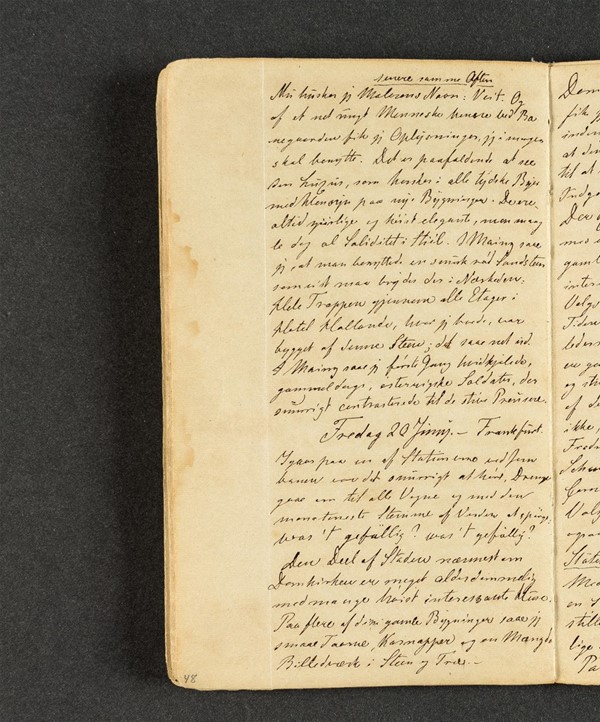 senere samme Aften
Nu husker jeg Malerens Navn: Veit. Og
af et net ungt Menneske henne ved Ba
negaarden fik jeg Oplysninger, jeg imorgen
skal benytte. Det er paafaldende at see
den Luxus, som hersker i alle tydske Byer
med Hensyn paa nye Bygninger. De ere
altid zirlige og høist elegante, men mang
le dog al Soliditet i Stiil. I Mainz saae
jeg at man benyttede en smuk rød Sandsteen
som vist maa brydes der i Nærheden;
Hele Trappen gjennem alle Etager i
Hotel Hollande, hvor jeg boede, var
bygget af denne Steen; det saae net ud.
I Mainz saae jeg første Gang hvidkjolede,
gammeldags, østerrigske Soldater, der
snurrigt contrasterede til de stive Preussere.
Fredag 20 Juni. – Frankfurt.
paa en af Stationerne ved Jern
banen var det snurrigt at høre, Drenge
gaae om til alle Vogne og med den
monotoneste Stemme af Verden at spørge
was't gefällig? was't gefällig?
Den Deel af Staden nærmest om
Domkirken er meget alderdommelig
med mange høist interessante Huse.
Paa flere af disse gamle Bygninger saae jeg
smaae Taarne, Karnapper og en Mængde
Billedværk i Steen og Træ. –
48